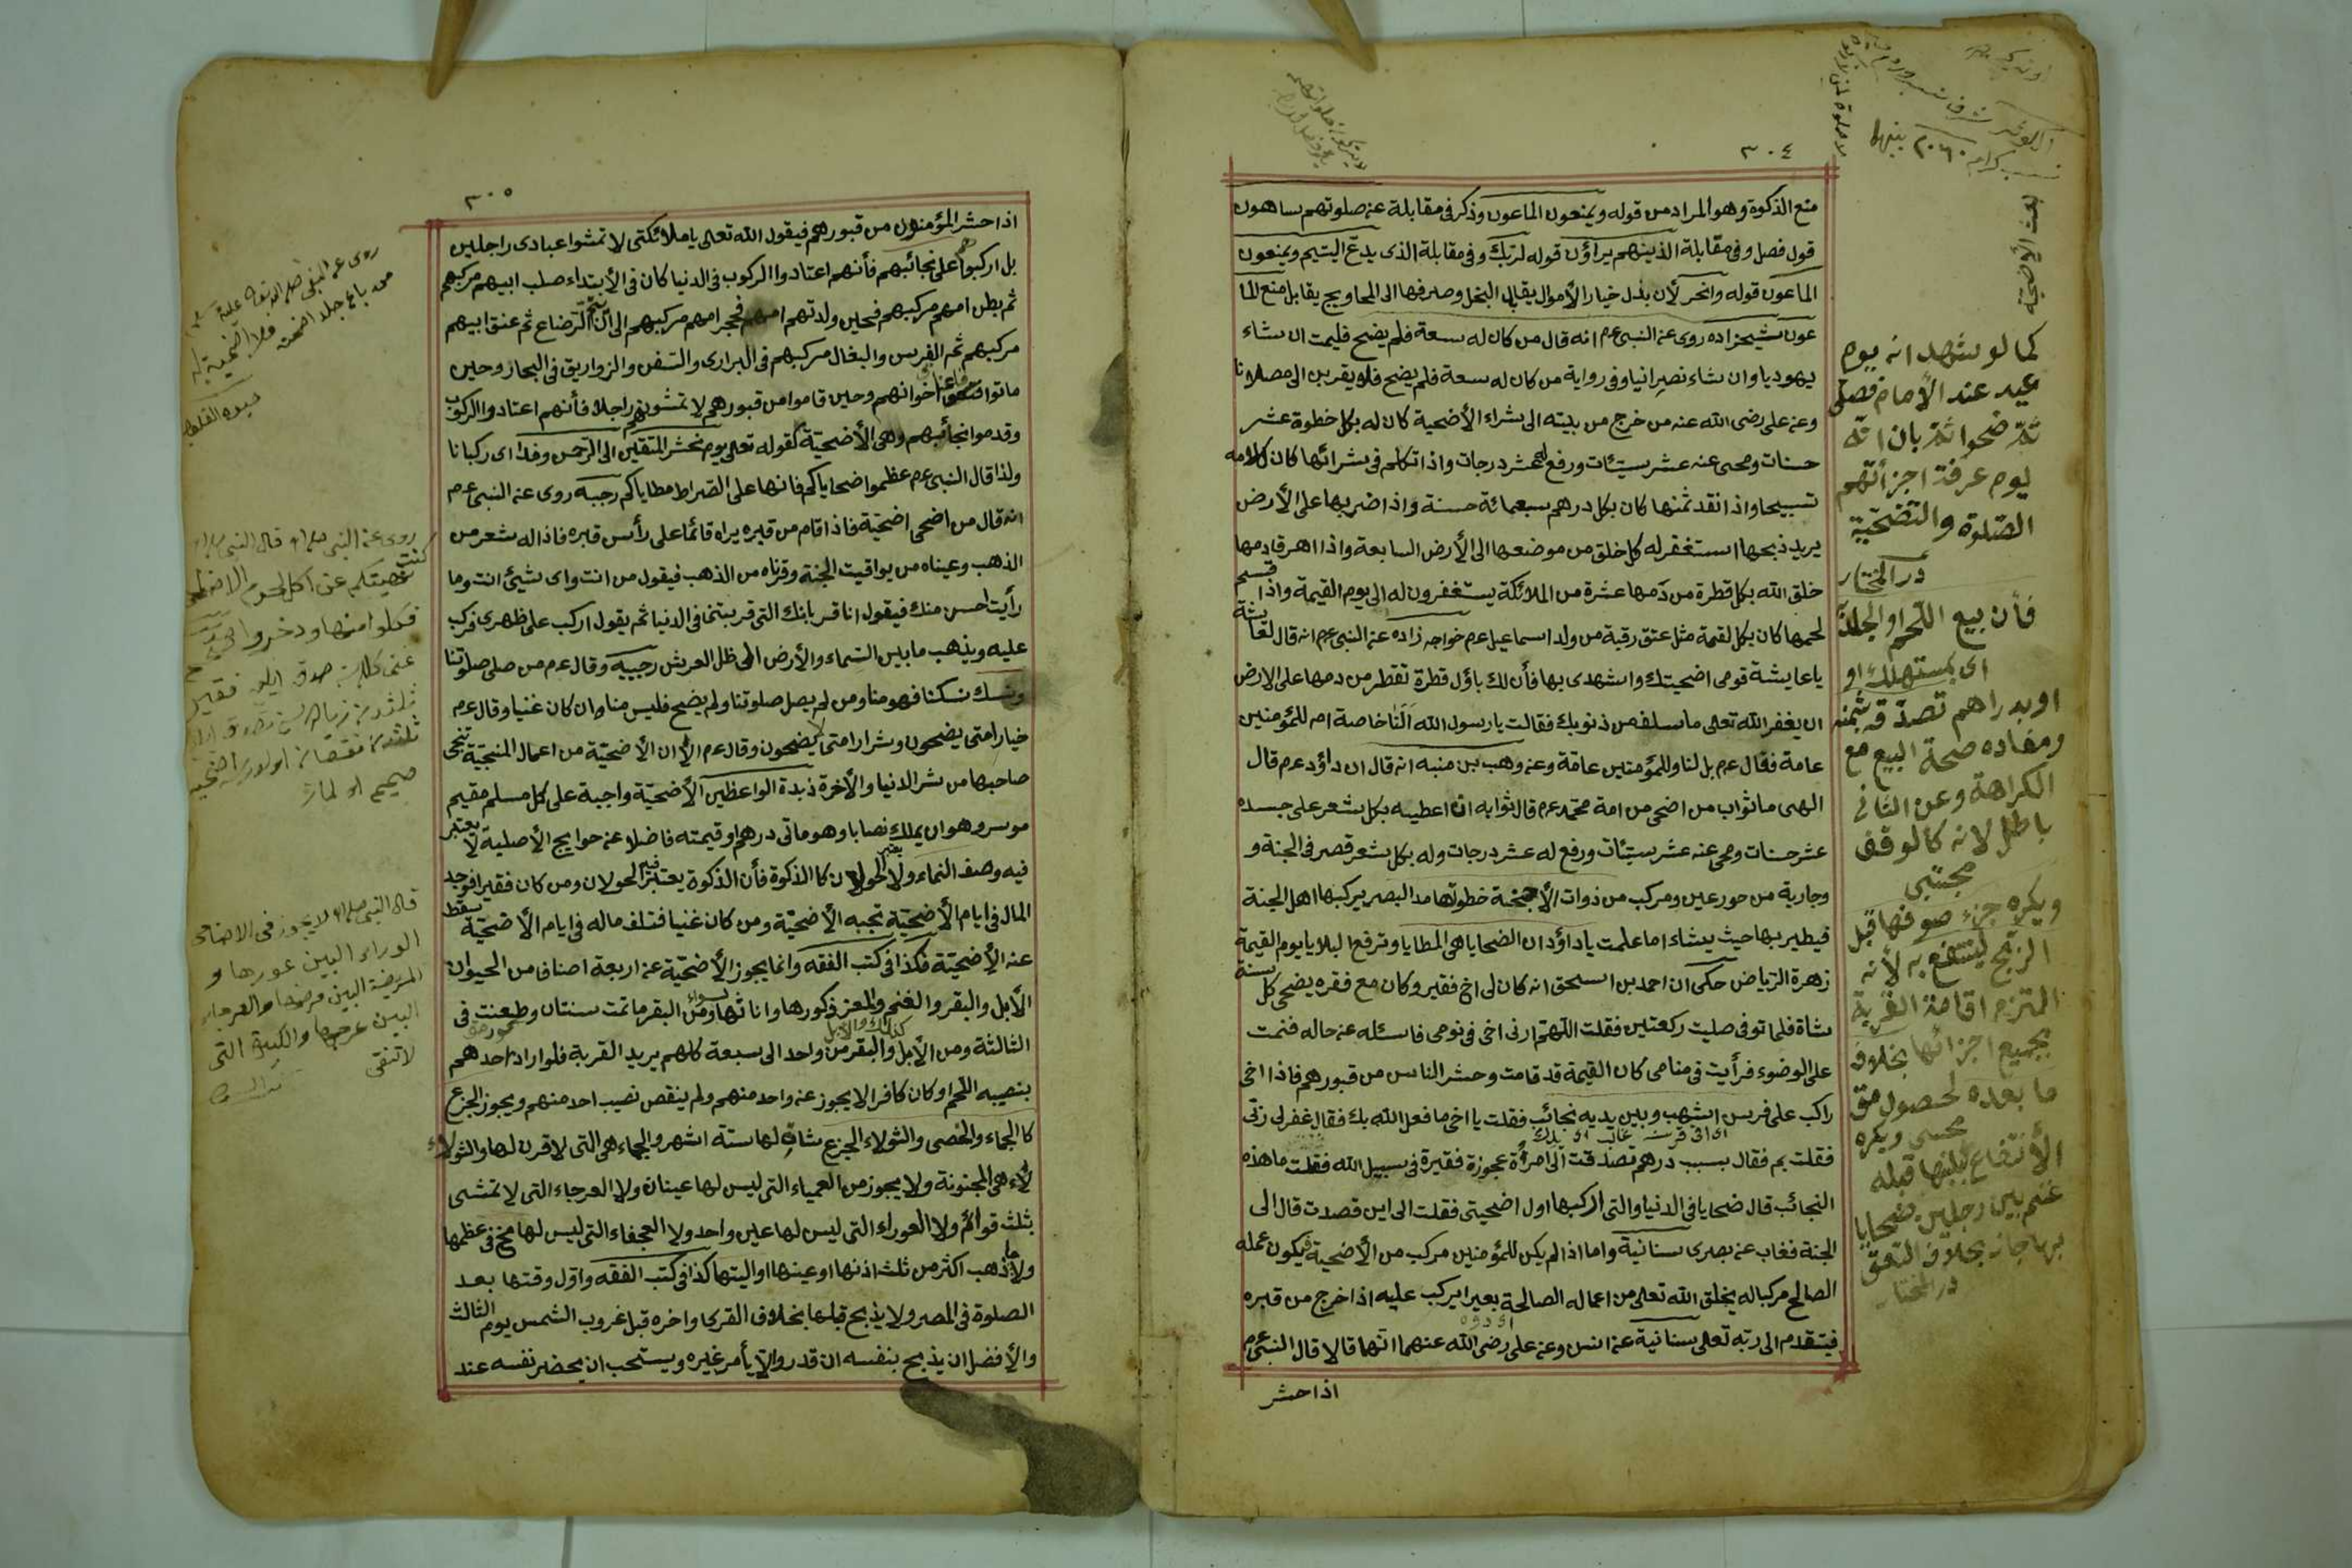 ٣٠٤
منع الذكوة وهو المراد من قوله ويمنعون الماعون وذكر فى مقابلة عن صلوتهم ساهون
قول فصل وفى مقابلة الذينهم يراؤن قوله لربك وفى مقابلة الذى يدع اليتيم ويمنعون
الماعون قوله وانحر لأن بذل خيار الأموال يقابل البخل وصرفها الى المحاويج يقابل منع الما
عون شيخزاده روى عن النبى عم انه قال من كان له سعة فلم يضح فليمت ان شاء
يهوديا وان شاء نصرانيا وفى رواية من كان له سعة فلم يضح فلا يقربن الى مصلانا
وعن على رضى الله عنه من خرج من بيته الى شراء الأضحية كان له بكل خطوة عشر
حسنات ومحى عنه عشر سيئات ورفع له عشر درجات واذا تكلم فى شرائها كان كلامه
تسبيحا واذا نقد ثمنها كان بكل درهم سبعمائة حسنة واذا ضربها على الأرض
يريد ذبحها استغفر له كل خلق من موضعها الى الأرض السابعة واذا اهرق دمها
خلق الله بكل قطرة من دمها عشرة من الملائكة يستغفرون له الى يوم القيمة واذا قسم
لحمها كان بكل لقمة مثل عتق رقبة من ولد اسماعيل عم خواجه زاده عن النبى عم انه قال لعائشة
يا عايشة قومى اضحيتك واشهدى بها فأن لك باؤل قطرة تقطر من دمها على الارض
ان يغفر الله تعلى ما سلف من ذنوبك فقالت يا رسول الله ألنا خاصة ام للمؤمنين
عامة فقال عم بل لنا وللمؤمنين عامة وعن وهب بن منبه انه قال ان داؤد عم قال
الهى ما ثواب من اضحى من امة محمد عم قال ثوابه ان اعطيه بكل شعر على جسده
عشر حسنات ومحى عنه عشر سيئات ورفع له عشر درجات وله بكل شعر قصر فى الجنة و
وجارية من حور عين ومركب من ذوات الأجنحة خطوتها مد البصر يركبها اهل الجنة
فيطير بها حيث يشاء اما علمت يا داؤد ان الضحايا هى المطايا وترفع البلايا يوم القيمة
زهرة الرياض حكى ان احمد بن اسحق انه كان لى اخ فقير وكان مع فقره يضحى كل سنة
شاة فلما توفى صليت ركعتين فقلت اللهم ارنى اخى فى نومى فاسئله عن حاله فنمت
على الوضوء فرأيت فى منامى كان القيمة قد قامت وحشر الناس من قبورهم فاذا اخى
راكب على فرس اشهب وبين يديه نجائب فقلت يا اخى ما فعل الله بك فقال غفر لى ربى
فقلت بم فقال بسبب درهم تصدقت الى امرأة عجوزة فقيرة فى سبيل الله فقلت ما هذه
النجائب قال ضحايا فى الدنيا والتى اركبها اول اضحيتى فقلت الى اين قصدت قال الى
الجنة فغاب عن بصرى سنانية واما اذا لم يكن للمؤمنين مركب من الأضحية ويكون عمله
الصالح مركبا له يخلق الله تعلى من اعماله الصالحة بعيرا يركب عليه اذا خرج من قبره
فيتقدم الى ربه تعلى سنانية عن انس وعن على رضى الله عنهما انهما قالا قال النبى عم
اذا حشر
بحث الأضحية
كما لو شهد انه يوم
عيد عند الأمام فصلى
ثم ضحوا ثم بان انه
يوم عرفة اجزأتهم
الصلوة والتضحية
در المختار
فأن بيع اللحم او الجلد
اى بمستهلك او
او بدراهم تصدق بثمنه
ومفاده صحة البيع مع
الكراهة وعن الثانى
باطل لانه كالوقف
مجتبى
ويكره جز صوفها قبل
الذبح لينتفع به لأنه
التزم اقامة القربة
بجميع اجزائها بخلاف
ما بعده لحصول
مجتبى ويكره
الأنتفاع بلبنها قبله
غنم بين رجلين ضحايا
بها جاز بخلاف العتق
در المختار
٣٠٥
اذا حشر المؤمنون من قبورهم فيقول الله تعالى يا ملائكتى لا تمشوا عبادى راجلين
بل اركبوهم على نجائبهم فأنهم اعتادوا الركوب فى الدنيا كان فى الأبتداء صلب ابيهم مركبهم
ثم بطن امهم مركبهم فحين ولدتهم امهم فحجر امهم مركبهم الى ان يتم الرضاع ثم عنق ابيهم
مركبهم ثم الفرس والبغال مركبهم فى البرارى والسفن والزواريق فى البحار وحين
ماتوا اعناق اخوانهم وحين قاموا من قبورهم لا تمشونهم راجلا فأنهم اعتادوا الركوب
وقدموا نجائبهم وهى الأضحية كقوله تعلى يوم نحشر المتقين الى الرحمن وفدا اى ركبانا
ولذا قال النبى عم عظموا ضحاياكم فانها على الصراط مطاياكم رجبيه روى عن النبى عم
انه قال من اضحى اضحية فاذا قام من قبره يراه قائما على رأس قبره فاذا له شعر من
الذهب وعيناه من يواقيت الجنة وقرناه من الذهب فيقول من انت واى شيئ انت وما
رأيت احسن منك فيقول انا قربانك التى قربتنى فى الدنيا ثم يقول اركب على ظهرى فركب
عليه ويذهب ما بين السماء والأرض الى ظل العرش رجبيه وقال عم من صلى صلوتنا
ونسك نسكنا فهو منا ومن لم يصل صلوتنا ولم يضح فليس منا وان كان غنيا وقال عم
خيار امتى يضحون وشرار امتى لا يضحون وقال عم الا ان الأضحية من اعمال المنجية تنجى
صاحبها من شر الدنيا والأخرة ذبدة الواعظين الأضحية واجبة على كل مسلم مقيم
موسر وهو ان يملك نصابا وهو مأتى درهم او قيمته فاضلا عن حوايج الأصلية لا يعتبر
فيه وصف النماء ولا الحولان كالذكوة فأن الذكوة يعتبر فيه الحولان ومن كان فقيرا فوجد
المال فى ايام الأضحية تجبه الأضحية ومن كان غنيا فتلف ماله فى ايام الأضحية سقط
عنه الأضحية فكذا فى كتب الفقه وانما يجوز الأضحية عن اربعة اصناف من الحيوان
الأبل والبقر والغنم والمعز ذكورها واناثها سواء ومن البقر ما تمت سنتان وطعنت فى
الثالثة ومن الأبل والبقر من واحد الى سبعة كلهم يريد القربة فلو اراد احدهم
بنصيبه اللحم او كان كافرا لا يجوز عن واحد منهم ولم ينقص نصيب احد منهم ويجوز الجزع
كا الجماء والخصى والثولاء الجزع شاة لها ستة اشهر والجماء هى التى لا قرن لها والثولاء
لأء هى المجنونة ولا يجوز من العمياء التى ليس لها عينان ولا العرجاء التى لا تمشى
بثلث قوائم ولا العوراء التى ليس لها عين واحد ولا العجفاء التى ليس لها مخ فى عظمها
ولا ما ذهب اكثر من ثلث اذنها او عينها او اليتها كذا فى كتب الفقه واول وقتها بعد
الصلوة فى المصر ولا يذبح قبلها بخلاف القرى واخره قبل غروب الشمس يوم الثالث
والأفضل ان يذبح بنفسه ان قدر والا يأمر غيره ويستحب ان يحضر نفسه عند
من باع جلد اضحيته فلا اضحية له
روى عن النبى قال النبى
كنت نهيتكم عن اكل لحوم الاضاحى
فكلوا منها ودخروا
قال النبى لا يجوز فى الاضاحى
العوراء البين عورها و
المريضة البين مرضها والعرجاء
البين عرجها والكبيرة التى
لا تنقى